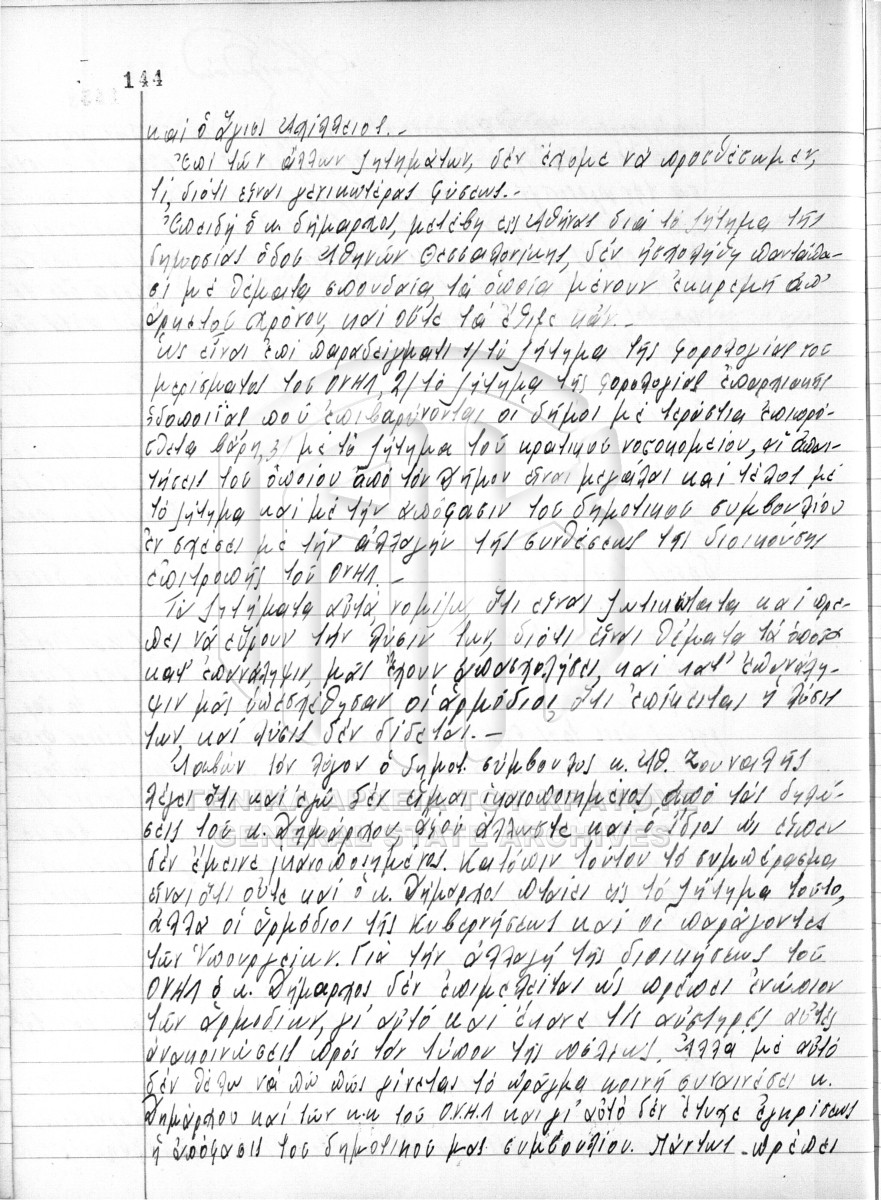 144
καί ὁ ἅγιος Ἀχίλλειος.-
Ἐπί τῶν ἄλλων ζητημάτων, δέν ἔχομε νά προσθέσωμεν,
τί, διότι εἶναι γενικωτέρας φύσεως.-
Ἐπειδή ὁ κ. δήμαρχος, μετέβη εἰς Ἀθήνας διά τό ζήτημα τῆς
δημοσίας ὁδοῦ Ἀθηνῶν Θεσσαλονίκης, δέν ἠσχολήθη παντάπα-
σι μέ θέματα σπουδαῖα, τά ὁποῖα μένουν ἐκκρεμῆ ἀπ'
ἀρκετοῦ χρόνου, καί οὔτε τά ἔθιξε κἄν.-
Ὡς εἶναι ἐπί παραδείγματι 1/ τό ζήτημα τῆς φορολογίας τοῦ
μερίσματος τοῦ ΟΥΗΛ, 2/ τό ζήτημα τῆς φορολογίας ἐπαρχιακῆς
ὁδοποιΐας πού ἐπιβαρύνονται οἱ δῆμοι μέ τεράστια ἐπιπρό-
σθετα βάρη, 3/ μέ τό ζήτημα τοῦ κρατικοῦ νοσοκομείου, αἱ ἀπαι-
τήσεις τοῦ ὁποίου ἀπό τόν Δῆμον εἶναι μεγάλαι καί τέλος μέ
τό ζήτημα καί μέ τήν ἀπόφασιν τοῦ δημοτικοῦ συμβουλίου
ἐν σχέσει μέ τήν ἀλλαγήν τῆς συνθέσεως τῆς διοικούσης
ἐπιτροπῆς τοῦ ΟΥΗΛ.-
Τά ζητήματα αὐτά νομίζω ὅτι εἶναι ζωτικώτατα καί πρέ-
πει νά εὕρουν τήν λύσιν των, διότι εἶναι θέματα τά ὁποῖα
κατ' ἐπανάληψιν, μᾶς ἔχουν ἀπασχολήσει, καί κατ' ἐπανάλη-
ψιν μᾶς ὑπεσχέθησαν οἱ ἁρμόδιοι, ὅτι ἐπίκειται ἡ λύσις
των καί λύσις δέν δίδεται.-
Λαβών τόν λόγον ὁ δημοτ. σύμβουλος κ. Ἀθ. Ζουναλῆς
λέγει ὅτι καί ἐγώ δέν εἶμαι ἱκανοποιημένος ἀπό τάς δηλώ-
σεις τοῦ κ. Δημάρχου, ἀφοῦ ἄλλωστε καί ὁ ἴδιος ὡς εἶπεν
δέν ἔμεινε ἱκανοποιημένος. Κατόπιν τούτου τό συμπέρασμα
εἶναι ὅτι οὔτε καί ὁ κ. Δήμαρχος πταίει εἰς τό ζήτημα τοῦτο,
ἀλλά οἱ ἁρμόδιοι τῆς Κυβερνήσεως καί οἱ παράγοντες
τῶν Ὑπουργείων. Γιά τήν ἀλλαγή τῆς διοικήσεως τοῦ
ΟΥΗΛ ὁ κ. Δήμαρχος δέν ἐπιμελεῖται ὡς πρέπει ἐνώπιον
τῶν ἁρμοδίων, γι' αὐτό καί ἔκανε τίς αὐστηρές αὐτές
ἀνακοινώσεις πρός τόν τύπον τῆς πόλεως. Ἀλλά μέ αὐτό
δέν θέλω νά πῶ πώς γίνεται τό πρᾶγμα κοινῇ συναινέσει κ.
Δημάρχου καί τῶν κ.κ τοῦ Ο.Υ.Η.Λ καί γι' αὐτό δέν ἔτυχε ἐγκρίσεως
ἡ ἀπόφασις τοῦ δημοτικοῦ μας συμβουλίου. Πάντως πρέπει
ΓΕΝΙΚΑ ΑΡΧΕΙΑ ΤΟΥ ΚΡΑΤΟΥΣ
GENERAL STATE ARCHIVES